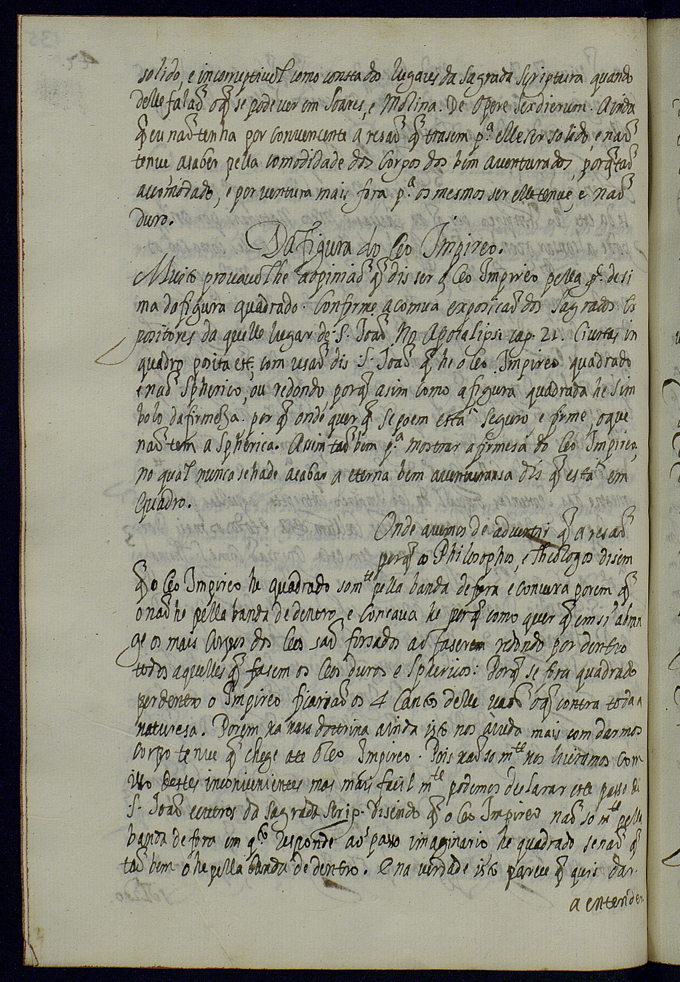 solido, e incorruptivel como consta do lugares da sagrada scriptura quando
delle falaõ o q̃ se pode ver em Soares, e Molina. De Opere sex dierum. Ainda
q̃ eu naõ tenha por convencente a resaõ q̃ trasem pª elle ser solido, e naõ
tenue a saber pella comodidade dos corpos dos bem aventurados, porq̃ taõ
acomodado, e por ventura mais fora pª os mesmos ser elle tenue, e naõ
duro.
Da figura do Ceo Impireo.
Muito provavel he a opiniaõ q̃ dis ser o Ceo Impireo pella
ma da figura quadrado. Conforme a comua exposicaõ dos sagrados Ex
positores da quelle lugar de S. Joaõ No Apocalips. cap. 21. Civitas in
quadro posita est com resaõ dis S. Joaõ q̃ he o Ceo Impireo quadrado
e naõ spherico, ou redondo porq̃ asim como a figura quadrada he sim
bolo da firmeza. por q̃ onde quer q̃ se poem esta seguro e firme, o que
naõ tem a spherica. Assim taõ bem pª mostrar a firmesa do Ceo Impireo,
no qual nunca se hade acabar a eterna bem aventuransa dis q̃ esta em
quadro.
Onde avemos de advertir q̃ a resaõ
porq̃ os Philosophos, e Theologos disem
q̃ o Ceo Impireo he quadrado somᵗᵉ pella banda de fora e convexa porem q̃
o naõ he pella banda de dentro, e concava he porq̃ como quer q̃ em si abran
ge os mais corpos dos Ceos saõ forsados a o faserem redondo por dentro
todos aquelles q̃ fasem os Ceos duros e sphericos: Porq̃ se fora quadrado
por dentro o Impireo ficariaõ os 4 Cantos delle vaõs o q̃ contra toda a
naturesa. Porem na nossa doctrina ainda isto nos ajuda mais com darmos
corpo tenue q̃ chege ate o Ceo Impireo. Pois naõ so mᵗᵉ nos livramos com
isso destes inconvenientes mas mais facil mᵗᵉ podemos declarar este passo de
S. Joaõ e outros da sagrada scrip. disendo q̃ o Ceo Impireo naõ so mᵗᵉ pella
banda de fora em qᵗᵒ responde ao imaginario he quadrado senaõ q̃
taõ bem o he pella banda de dentro. E na verdade isto parece q̃ quis dar
a entender